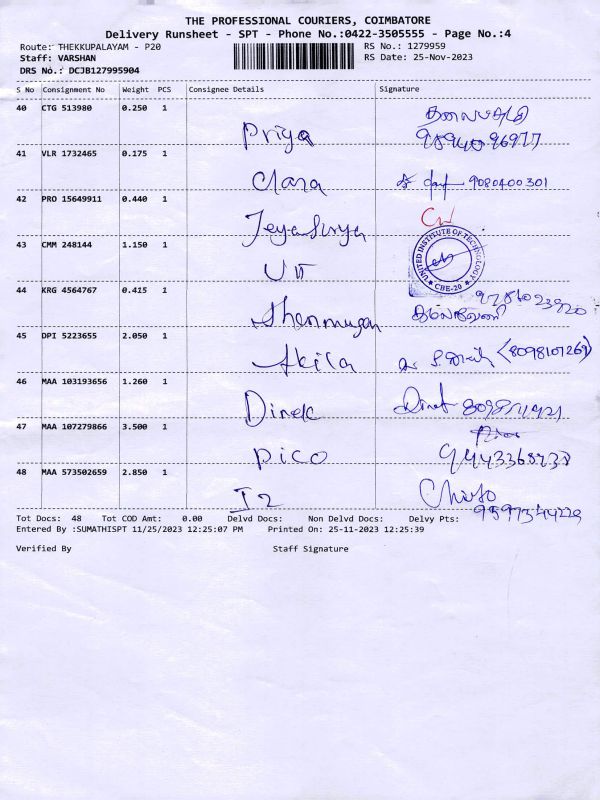 THE PROFESSIONAL COURIERS, COIMBATORE
Delivery Runsheet - SPT - Phone No.:0422-3505555 - Page No.:4
Route: THEKKUPALAYAM - P20
RS No.: 1279959
Staff: VARSHAN
RS Date: 25-Nov-2023
DRS No.: DCJB127995904
S No Consignment No Weight PCS Consignee Details Signature
40 CTG 513980 0.250 1
Priya
41 VLR 1732465 0.175 1
Clara 9080400301
42 PRO 15649911 0.440 1
JeyaSurya
43 CMM 248144 1.150 1
UIT
UNITED INSTITUTE OF TECHNOLOGY
* CBE-20 *
44 KRG 4564767 0.415 1
Shenmugan
45 DPI 5223655 2.050 1
Akila
46 MAA 103193656 1.260 1
47 MAA 107279866 3.500 1
Pico
48 MAA 573502659 2.850 1
Tot Docs: 48 Tot COD Amt: 0.00 Delvd Docs: Non Delvd Docs: Delvy Pts:
Entered By :SUMATHISPT 11/25/2023 12:25:07 PM Printed On: 25-11-2023 12:25:39
Verified By Staff Signature